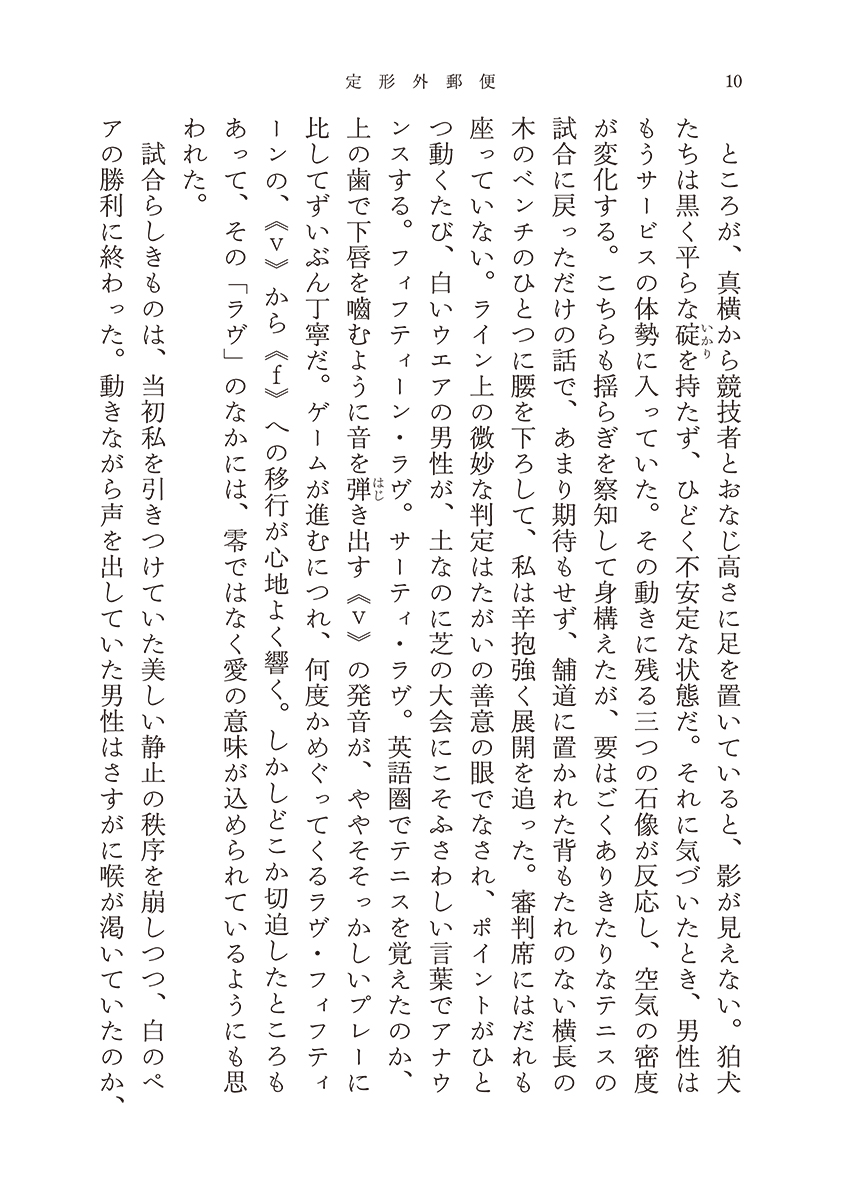 定形外郵便
10
ところが、真横から競技者とおなじ高さに足を置いていると、影が見えない。狛犬
たちは黒く平らな碇を持たず、ひどく不安定な状態だ。それに気づいたとき、男性は
いかり
もうサービスの体勢に入っていた。その動きに残る三つの石像が反応し、空気の密度
が変化する。こちらも揺らぎを察知して身構えたが、要はごくありきたりなテニスの
試合に戻っただけの話で、あまり期待もせず、舗道に置かれた背もたれのない横長の
木のベンチのひとつに腰を下ろして、私は辛抱強く展開を追った。審判席にはだれも
座っていない。ライン上の微妙な判定はたがいの善意の眼でなされ、ポイントがひと
つ動くたび、白いウエアの男性が、土なのに芝の大会にこそふさわしい言葉でアナウ
ンスする。フィフティーン・ラヴ。サーティ・ラヴ。英語圏でテニスを覚えたのか、
上の歯で下唇を嚙むように音を弾き出す《v》の発音が、ややそそっかしいプレーに
はじ
比してずいぶん丁寧だ。ゲームが進むにつれ、何度かめぐってくるラヴ・フィフティ
ーンの、《v》から《f》への移行が心地よく響く。しかしどこか切迫したところも
あって、その「ラヴ」のなかには、零ではなく愛の意味が込められているようにも思
われた。
試合らしきものは、当初私を引きつけていた美しい静止の秩序を崩しつつ、白のペ
アの勝利に終わった。動きながら声を出していた男性はさすがに喉が渇いていたのか、